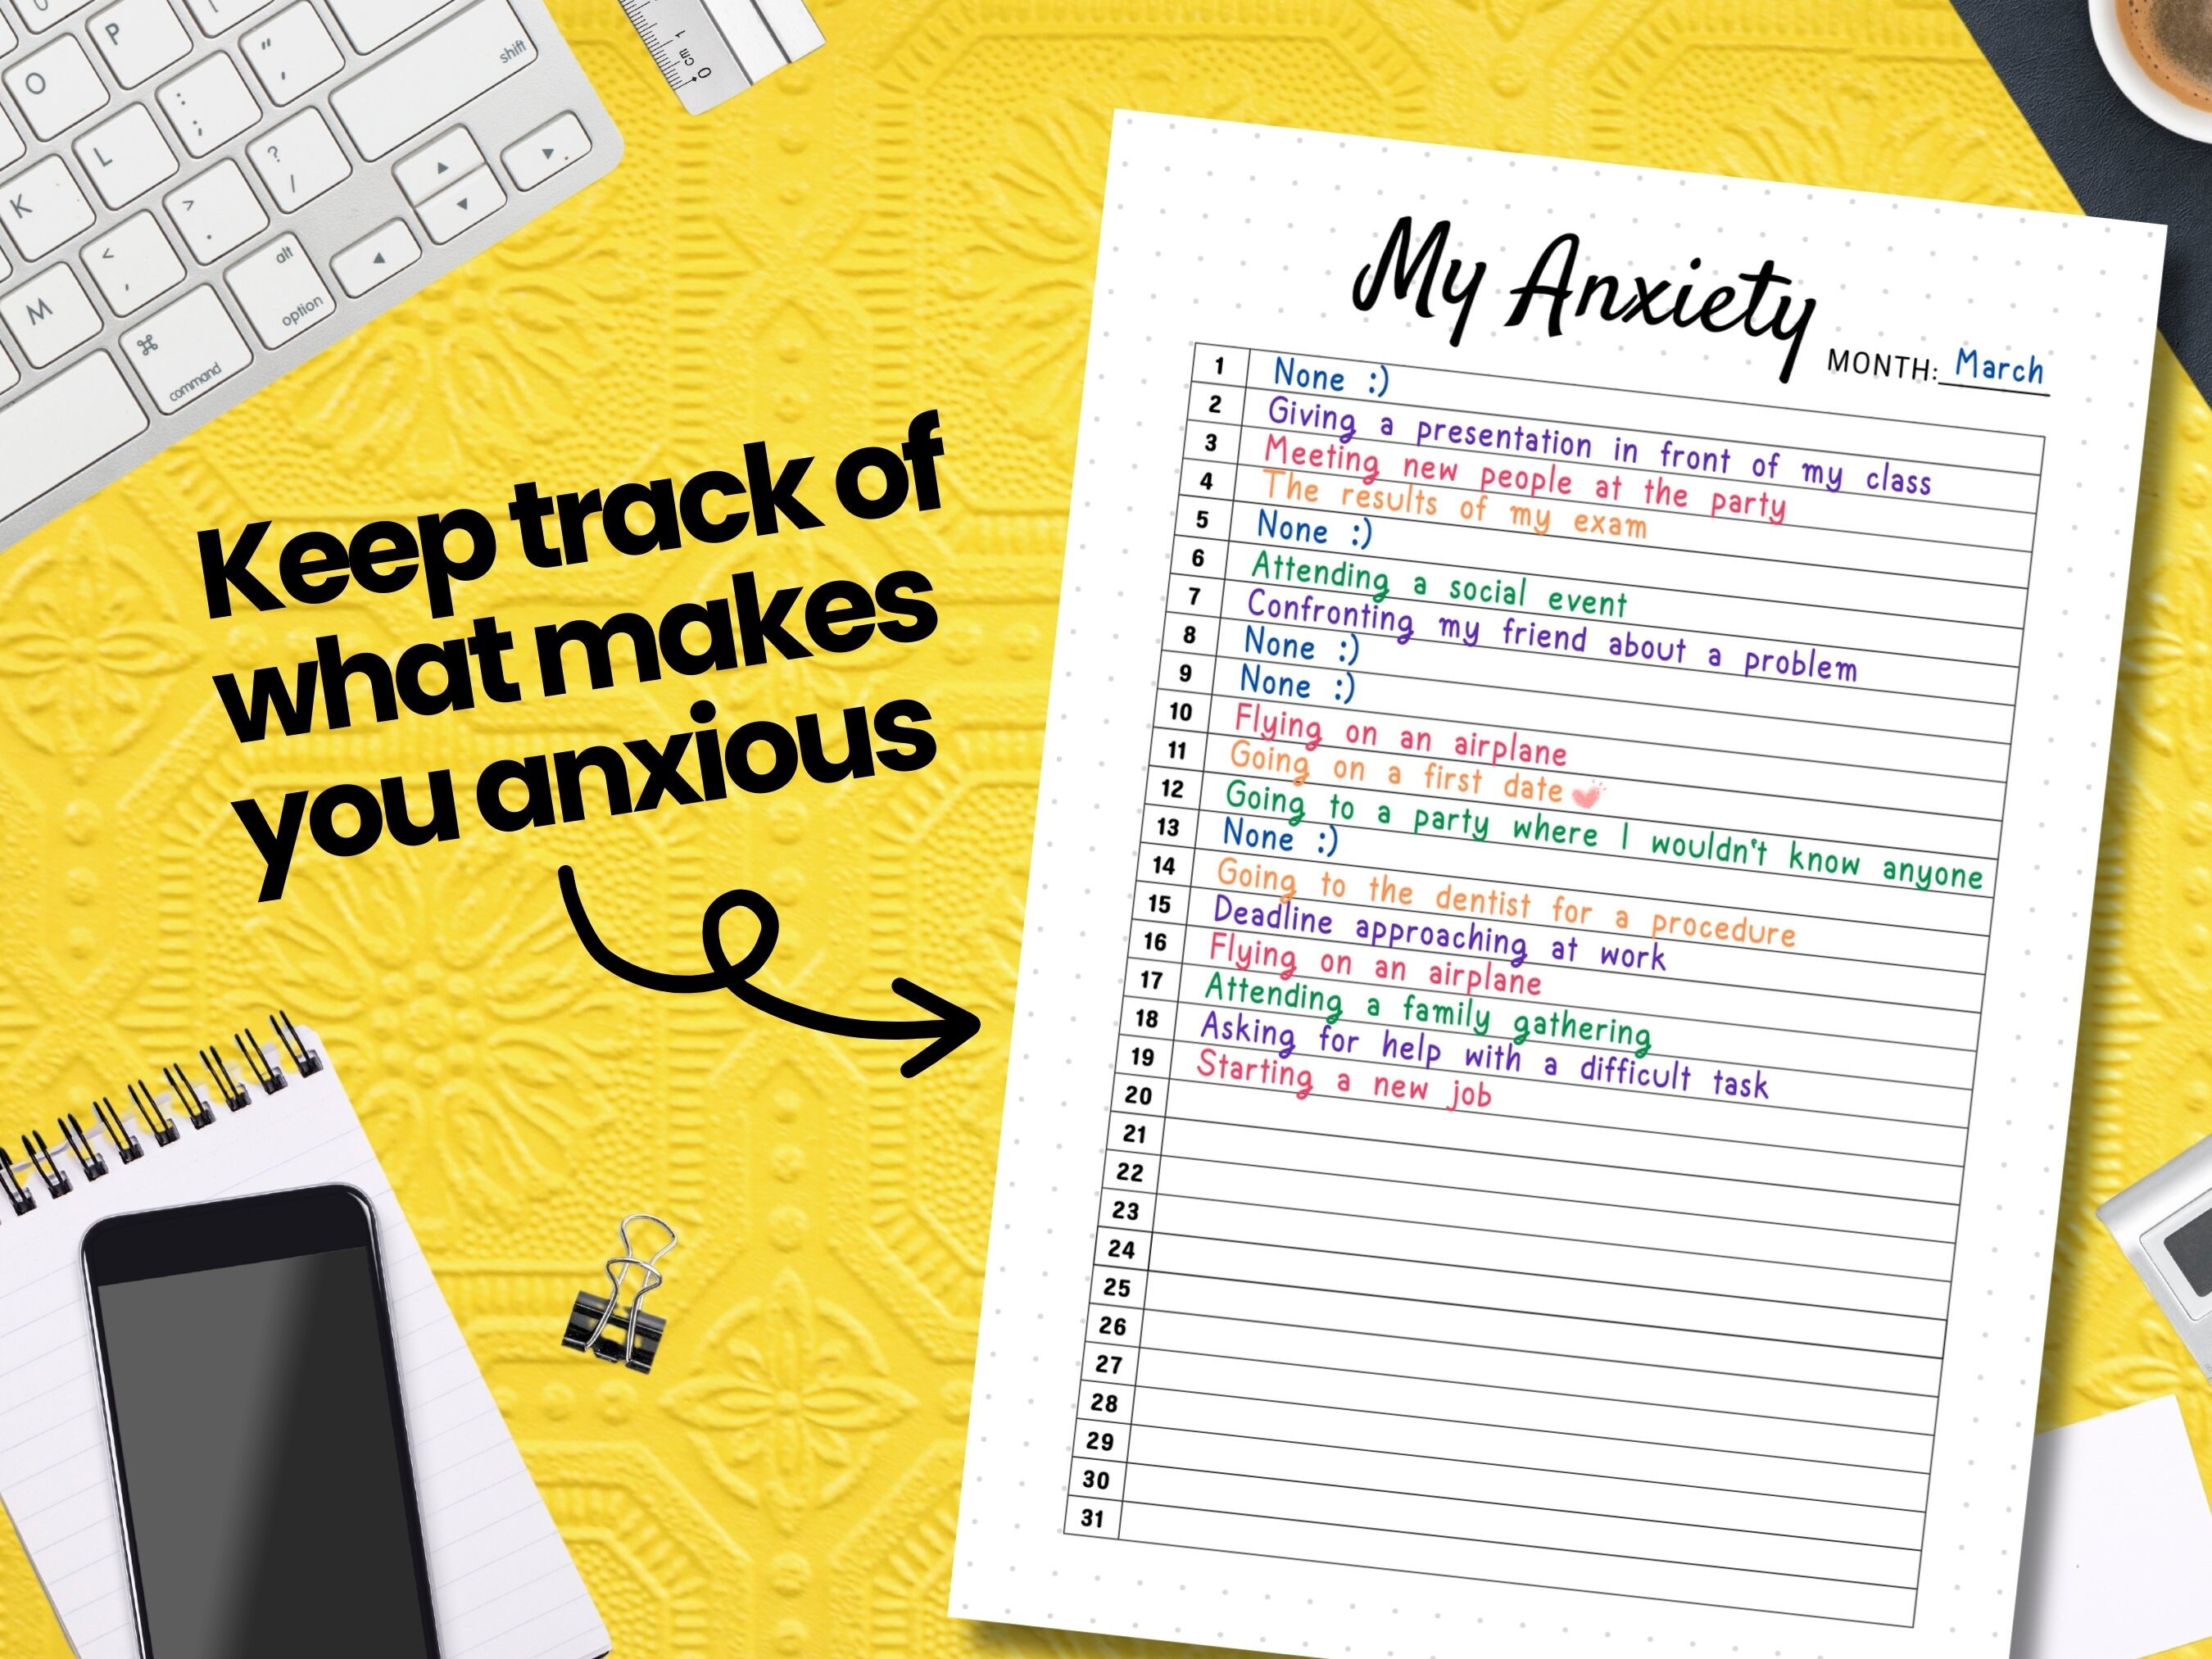 O
P
"
'
shift
K
L
:
;
?
/
M
<
,
>
.
alt
option
⌘
command
0 cm 1
Keep track of
what makes
you anxious
My Anxiety
MONTH: March
1 None :)
2 Giving a presentation in front of my class
3 Meeting new people at the party
4 The results of my exam
5 None :)
6 Attending a social event
7 Confronting my friend about a problem
8 None :)
9 None :)
10 Flying on an airplane
11 Going on a first date
12 Going to a party where I wouldn't know anyone
13 None :)
14 Going to the dentist for a procedure
15 Deadline approaching at work
16 Flying on an airplane
17 Attending a family gathering
18 Asking for help with a difficult task
19 Starting a new job
20
21
22
23
24
25
26
27
28
29
30
31